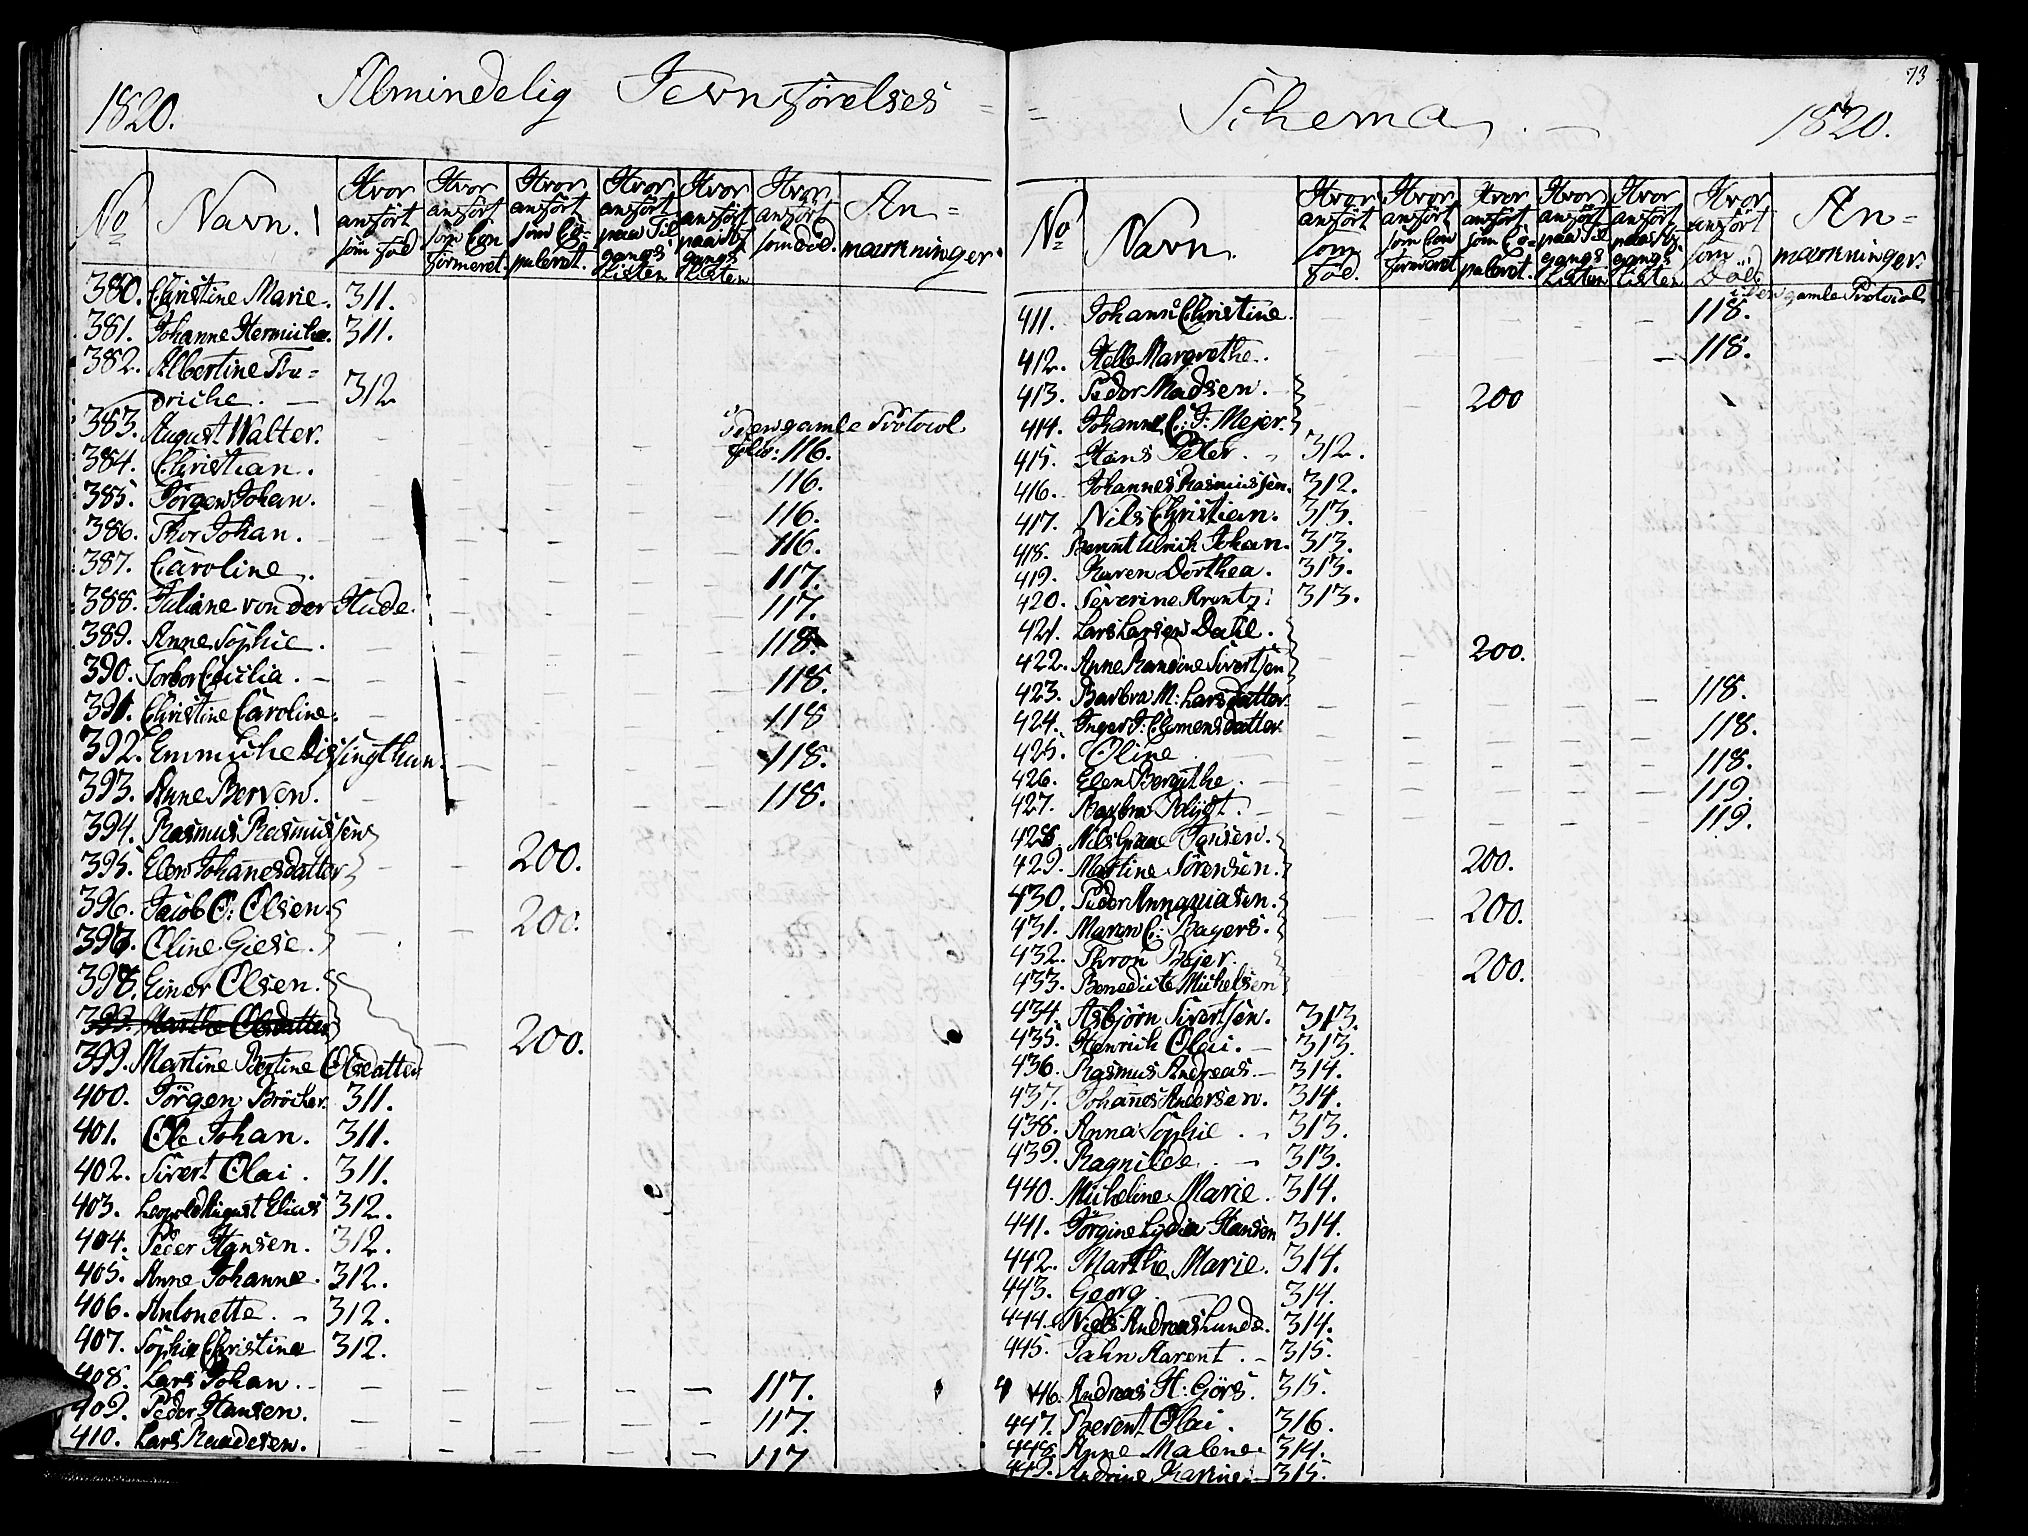 1820. Almindelig Jevnførelses =
No Navn. Hvor anført som fød Hvor anført som Confirmeret. Hvor anført som Copuleret. Hvor anført paa Tilgangs Listen Hvor anført paa Afgangs Listen Hvor anført som død. Anmærkninger.
380. Christine Marie. 311.
381. Johanne Hermiche. 311.
382. Albertine Fre=
driche. — 312
383. August Walter. i den gamle Protocol folio: 116.
384. Christian. 116.
385. Jörgen Johan. 116.
386. Thor Johan. 116.
387. Caroline. 117.
388. Juliane von der Hude. 117.
389. Anne Sophie. 118.
390. Torbor Cicilia. 118.
391. Christine Caroline. 118
392. Emmiche Dissingthun. 118.
393. Anne Berven. 118.
394. Rasmus Rasmussen
395. Elen Johanesdatter 200.
396. Jacob O: Olsen.
397. Oline Giese. 200.
398. Einer Olsen.
399. Marthe Olsdatter
399. Martine Bertine Olsdatter 200.
400. Jörgen Bröcker. 311.
401. Ole Johan. 311.
402. Sivert Olai. 311.
403. Leopold August Elias 312.
404. Peder Hansen. 312.
405. Anne Johanne. 312.
406. Antonette. 312.
407. Sophie Christine 312.
408. Lars Johan. 117.
409. Peder Hansen. 117.
410. Lars Knudesen. 117
73
= Schema. — 1820.
No Navn. Hvor anført som fød. Hvor anført som Con firmeret Hvor anført som Copuleret. Hvor anført paa Tilgangs Listen Hvor anført paa Afgangs Listen Hvor anført som Död Anmærkninger.
i den gamle Protocol
411. Johann Christine. 118.
412. Helle Margrethe. 118.
413. Peder Madsen. 200
414. Johanne C: J: Mejer.
415. Hans Peter. 312.
416. Johannes Rasmussen. 312.
417. Nils Christian. 313.
418. Berent Ulrich Johan. 313.
419. Karen Dorthea. 313.
420. Severine Arentz. 313.
421. Lars Larsen Dahl.
422. Anne Randine Sivertsen 200.
423. Barbra M: Larsdatter. 118.
424. Inger J: Clemensdatter 118.
425. Oline 118.
426. Elen Bergithe. 119.
427. Barbra Blÿgt. 119.
428. Nils Grane Jansen.
429. Martine Sörensen. 200.
430. Peder Annaniasen. 200.
431. Maren C: Bagers.
432. Thron Prejer. 200.
433. Benedicte Michelsen
434. Asbjörn Sivertsen. 313.
435. Henrich Olai. 313.
436. Rasmus Andreas. 314.
437. Johanes Andersen. 314.
438. Anna Sophie. 313.
439. Ragnilde. 313.
440. Micheline Marie. 314.
441. Jörgine Lydia Hansen 314.
442. Marthe Marie. 314.
443. Georg 314.
444. Niels Andreas Lunde. 314.
445. Jahn Aarent. 315.
446. Andreas H: Görs. 315.
447. Berent Olai. 316.
448. Anne Malene. 314.
449. Andrine Karine. 315.